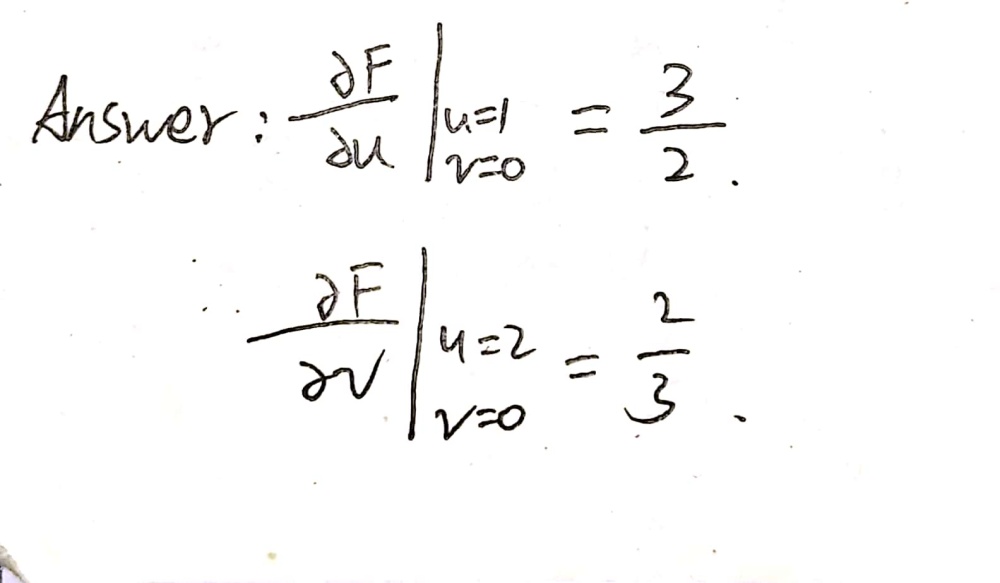 Answer: ∂F/∂u |u=1 v=0 = 3/2.
∂F/∂v |u=2 v=0 = 2/3.